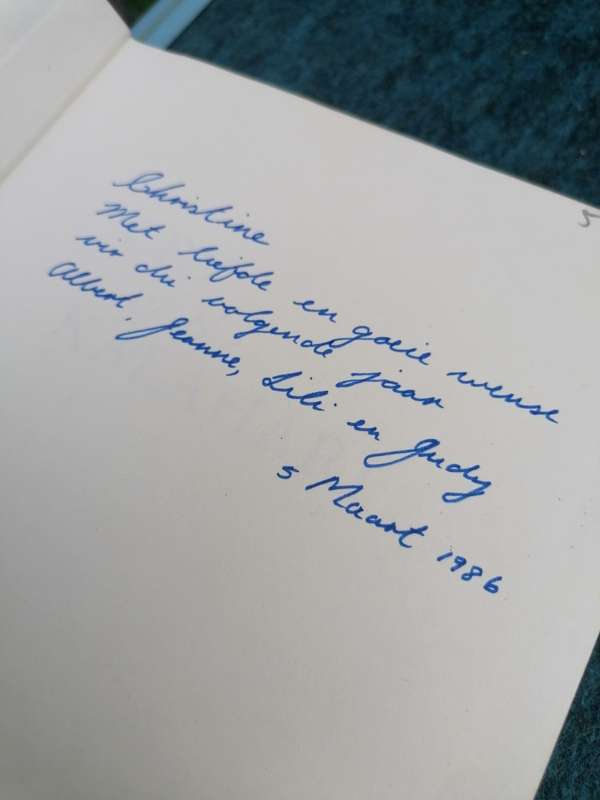 Christine
Met liefde en goeie wense
vir die volgende jaar
Albert, Jeanne, Lili en Judy
5 Maart 1986
5